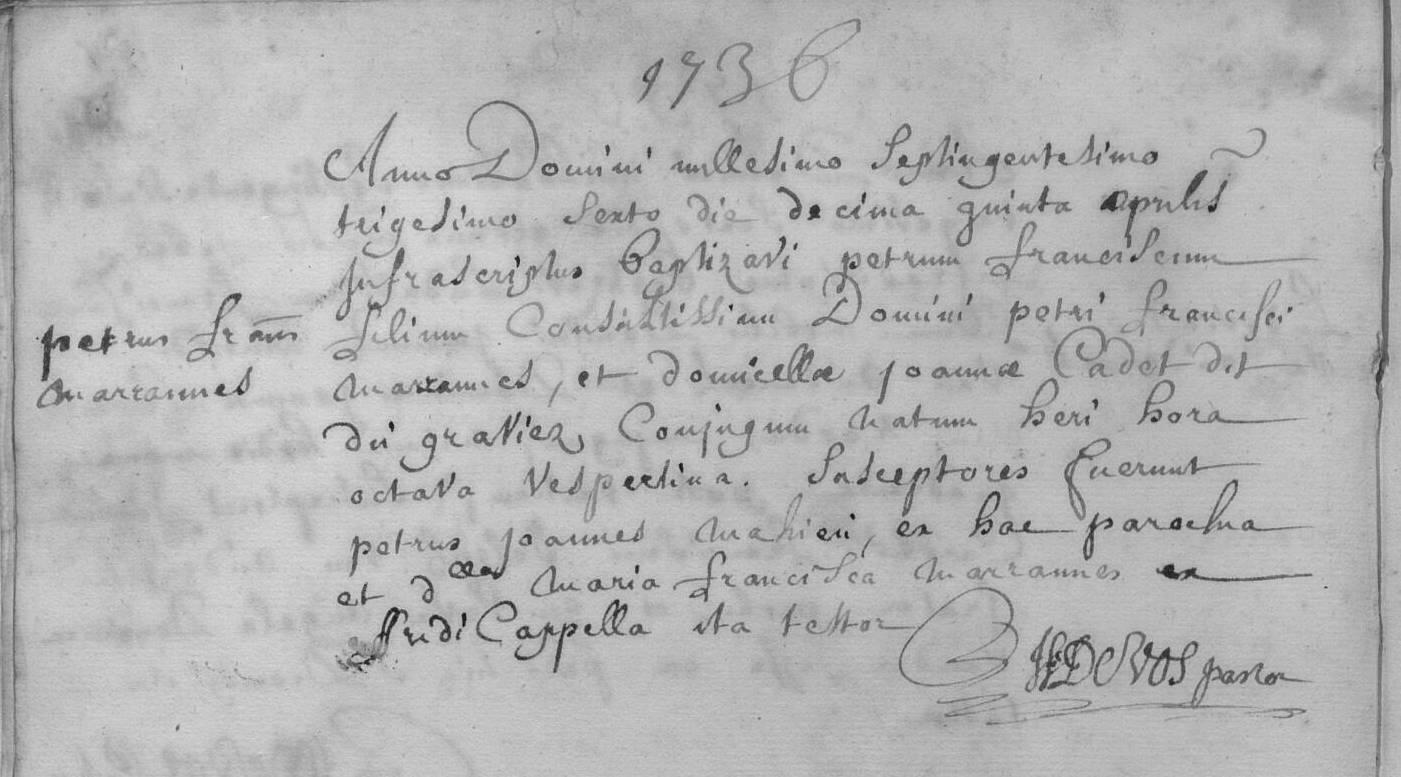 1736
Anno Domini millesimo Septingentesimo
trigesimo Sexto die decima quinta aprilis
Infrascriptus baptizavi petrum franciscum
petrus frans filium Consultissimi Domini petri francisci
Marrannes Marrannes, et domicellæ joannæ Cadet dit
du graviez, Conjugum natum heri hora
octava vespertina. Susceptores fuerunt
petrus joannes Mahieu, ex hac parochia
et dcella Maria francisca Marrannes ex
Cappella ita testor
DE VOS pastor